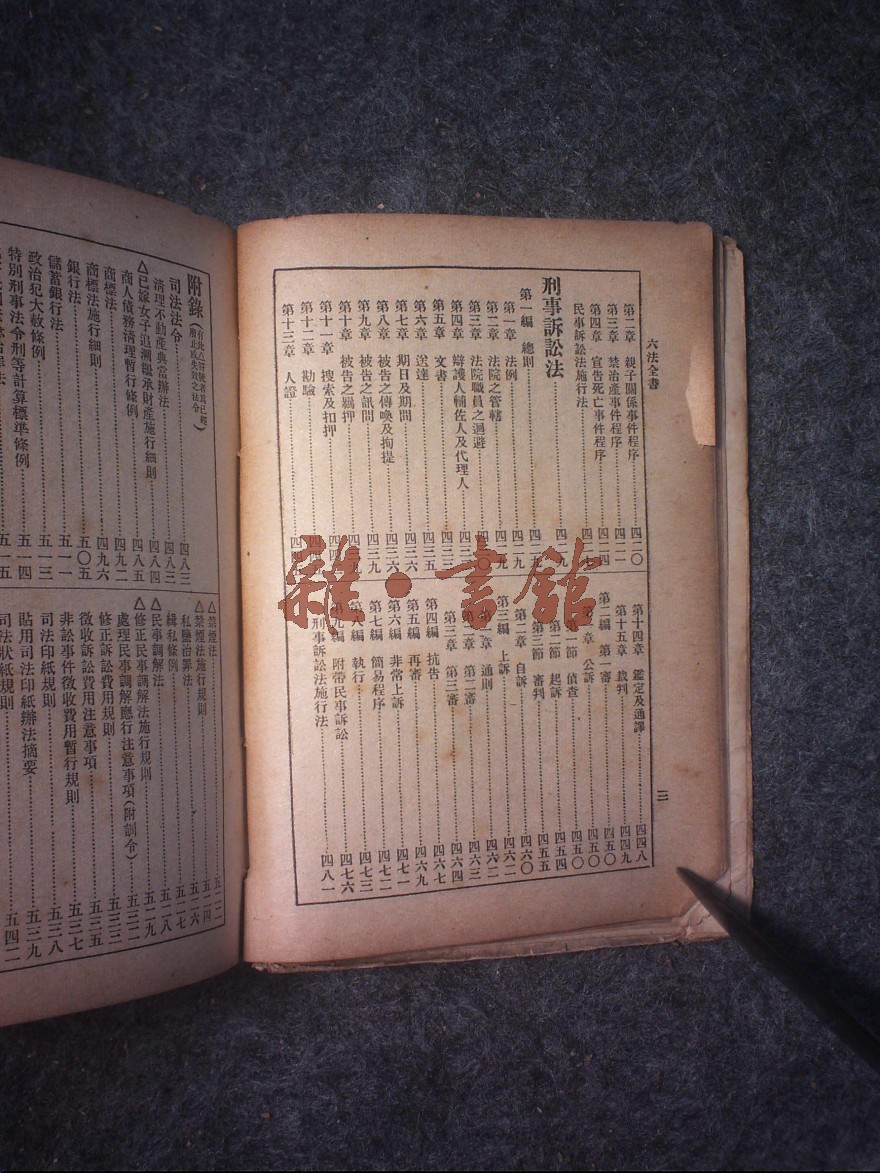 六法全書
第二章 親子關係事件程序 四二〇
第三章 禁治產事件程序 四二一
第四章 宣告死亡事件程序 四二四
民事訴訟法施行法
刑事訴訟法
第一編 總則
第一章 法例
第二章 法院之管轄
第三章 法院職員之迴避
第四章 辯護人輔佐人及代理人
第五章 文書
第六章 送達
第七章 期日及期間
第八章 被告之傳喚及拘提
第九章 被告之訊問
第十章 被告之羈押
第十一章 搜索及扣押
第十二章 勘驗
第十三章 人證
第十四章 鑑定及通譯 四四八
第十五章 裁判 四四九
第二編 第一審 四五〇
第一章 公訴 四五〇
第一節 偵查 四五〇
第二節 起訴 四五四
第三節 審判 四五五
第二章 自訴 四六〇
第三編 上訴 四六二
第一章 通則 四六二
第二章 第二審 四六三
第三章 第三審 四六四
第四編 抗告 四六七
第五編 再審 四六九
第六編 非常上訴 四七一
第七編 簡易程序 四七二
第八編 執行 四七三
第九編 附帶民事訴訟 四七六
刑事訴訟法施行法 四八一
三
附錄
司法法令 四八三
清理不動產典當辦法 四八三
△已嫁女子追溯繼承財產施行細則 四八四
商人債務清理暫行條例 四八五
商標法 四九二
商標法施行細則 四九六
銀行法 五〇五
儲蓄銀行法 五一一
政治犯大赦條例 五一三
特別刑事法令刑等計算標準條例 五一四
五一五
△禁煙法
△禁煙法施行規則
私鹽治罪法 五二六
緝私條例 五一七
△民事調解法 五一八
△修正民事調解法施行規則 五一九
處理民事調解應行注意事項(附訓令)
修正訴訟費用規則
徵收訴訟費用注意事項 五三五
非訟事件徵收費用暫行規則 五三七
司法印紙規則 五三八
貼用司法印紙辦法摘要 五三九
司法狀紙規則 五四二
雜·書館